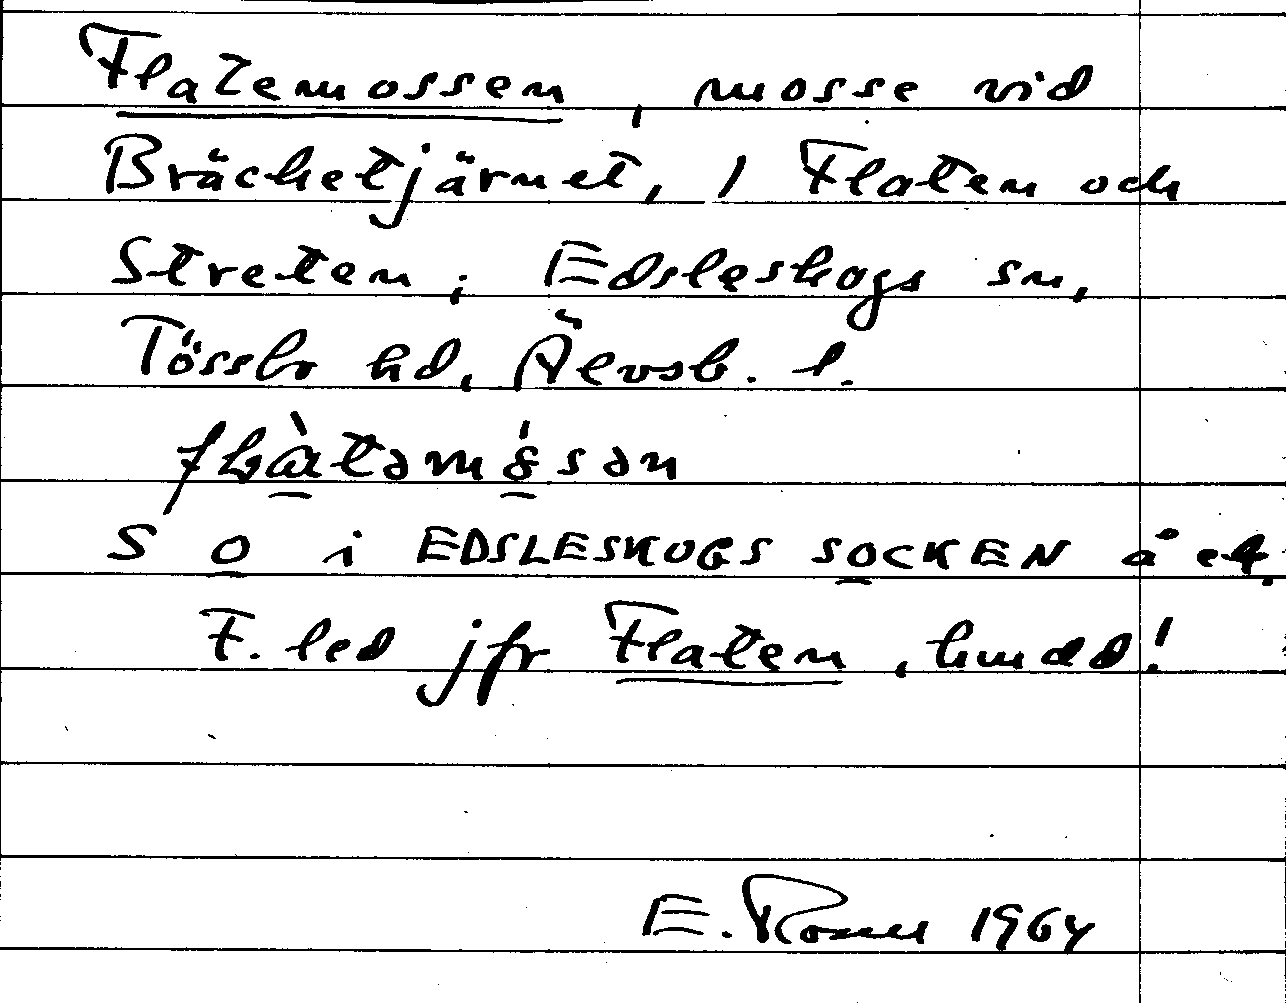 Flatemossen, mosse vid
Bräcketjärnet, / Flaten och
Streten; Edsleskogs sn,
Tössbo hd, Älvsb. l.
S O i EDSLESKOGS SOCKEN å ek.
F. led jfr Flaten, hmdd!
E. Rosell 1964